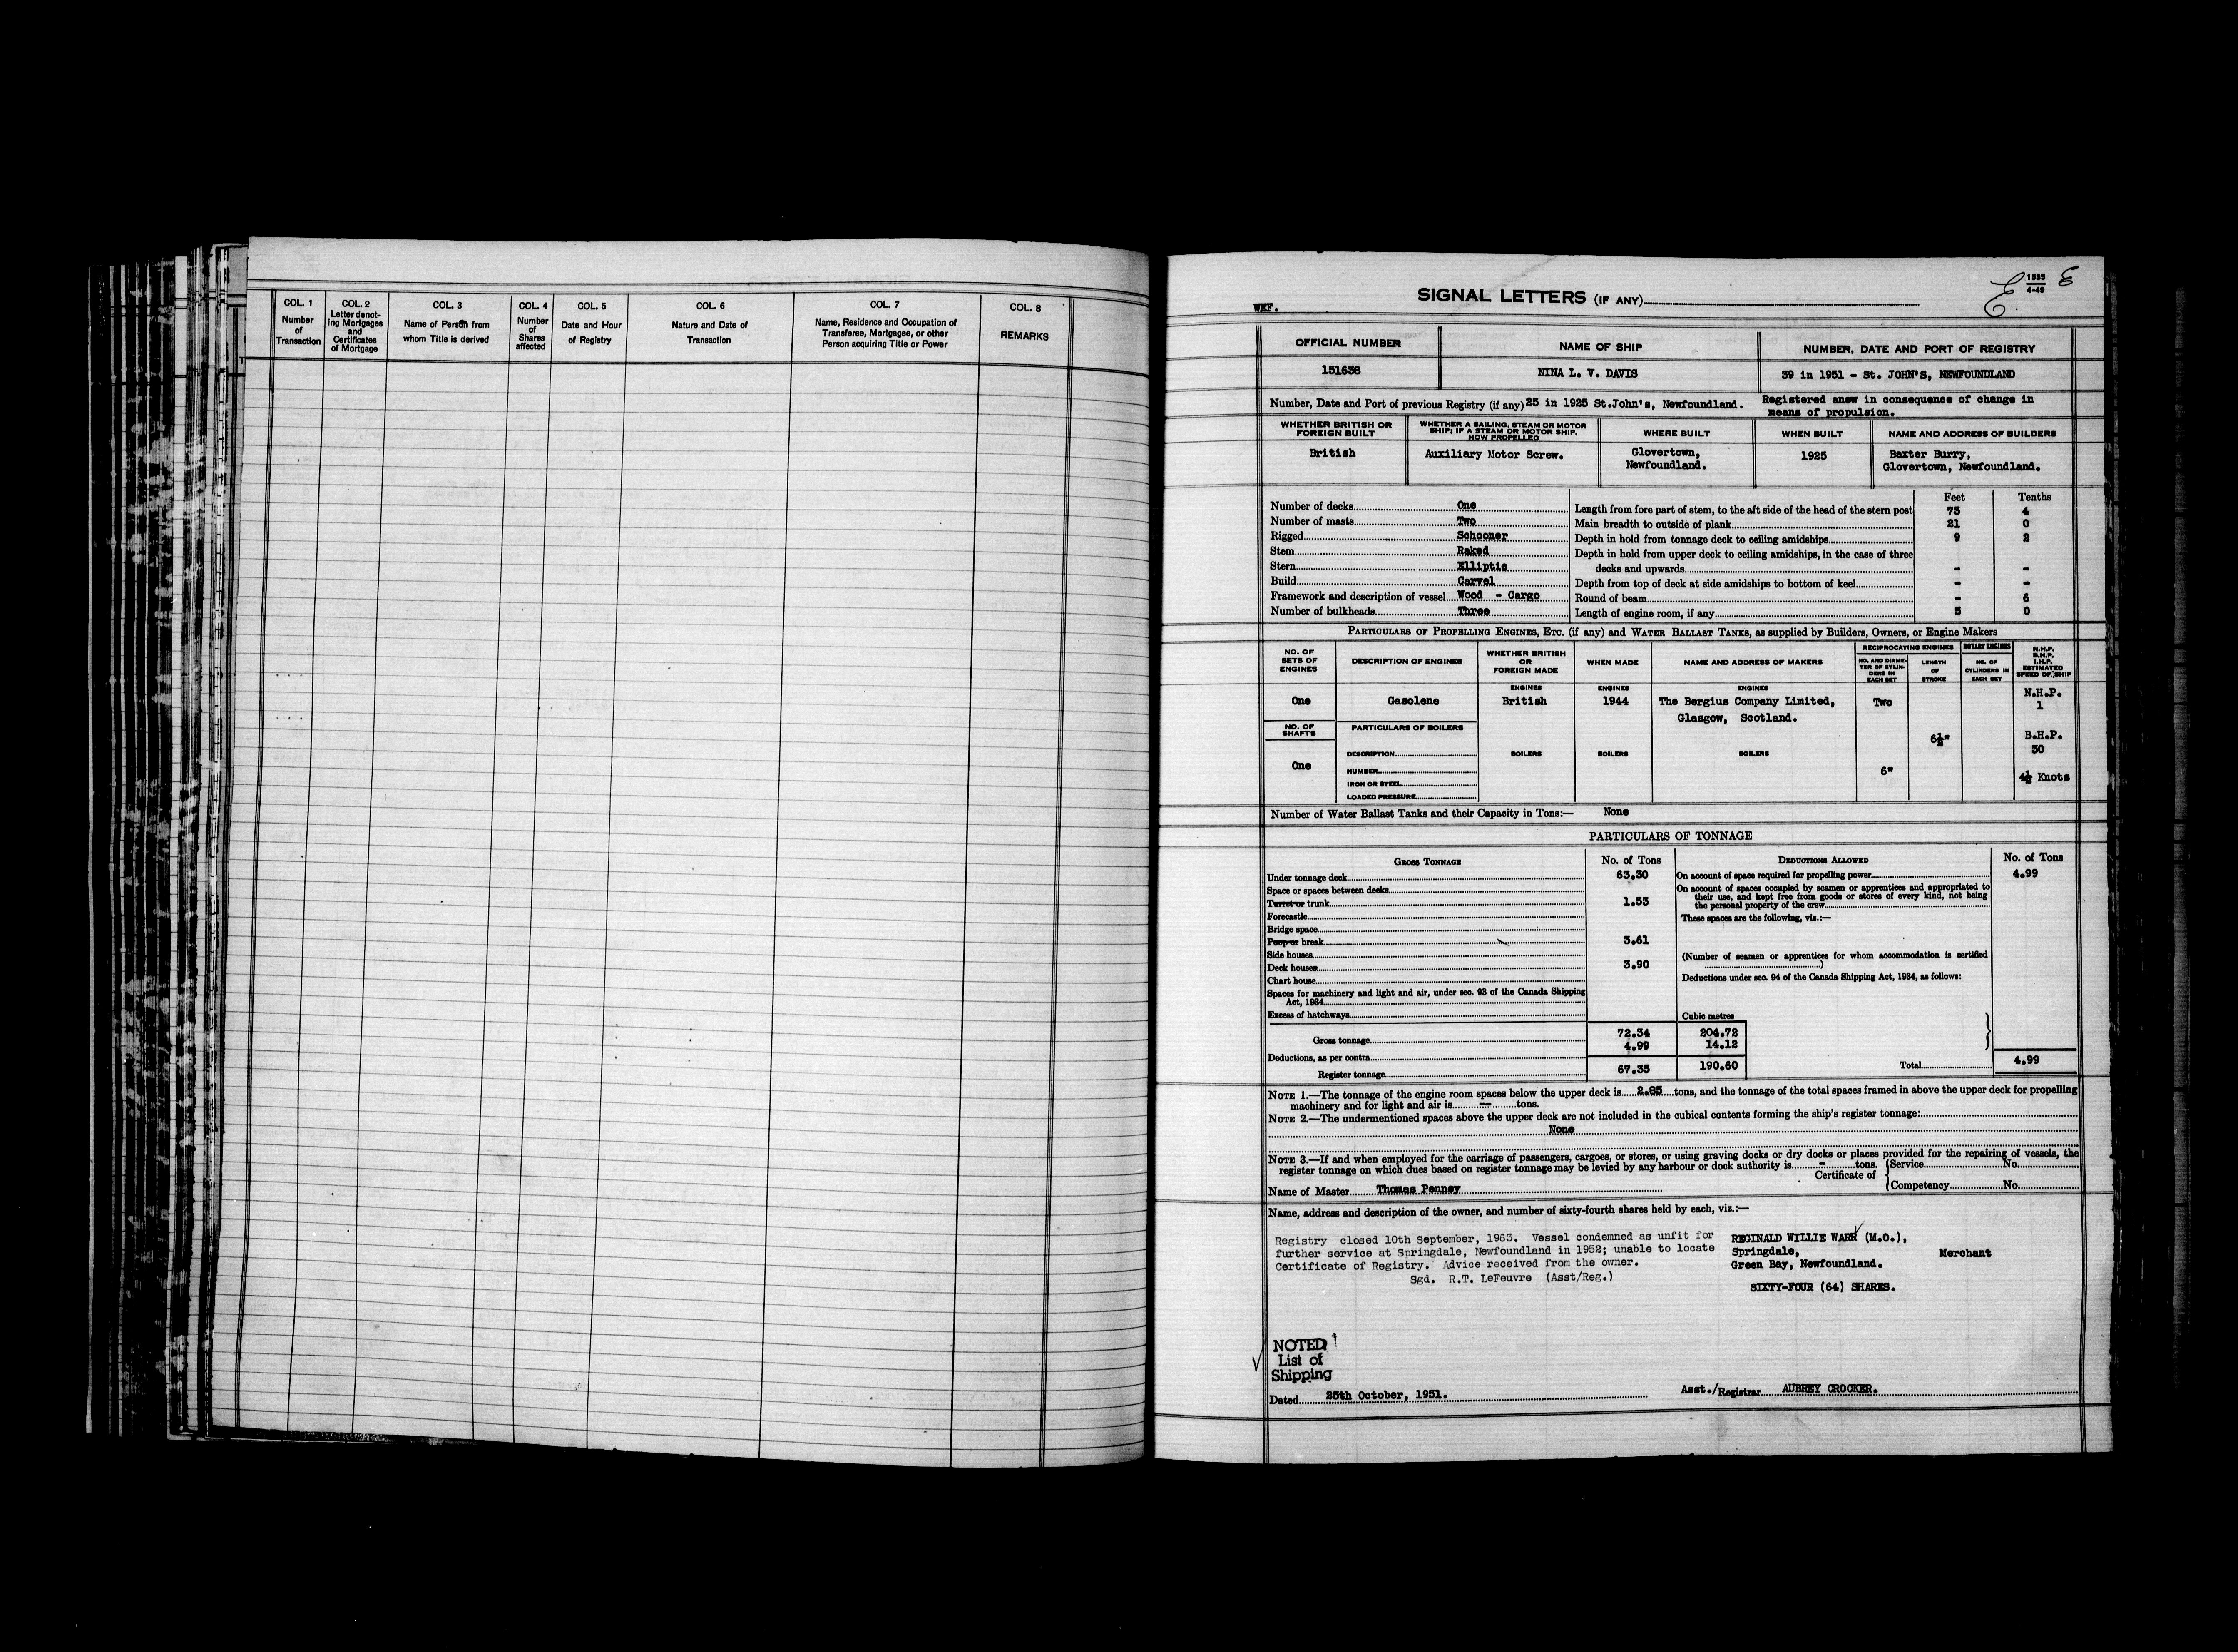 COL. 1
Number
of
Transaction
COL. 2
Letter denot-
ing Mortgages
and
Certificates
of Mortgage
COL. 3
Name of Person from
whom Title is derived
COL. 4
Number
of
Shares
affected
COL. 5
Date and Hour
of Registry
COL. 6
Nature and Date of
Transaction
COL. 7
Name, Residence and Occupation of
Transferee, Mortgagee, or other
Person acquiring Title or Power
COL. 8
REMARKS
1535
4-49
E
E
SIGNAL LETTERS (IF ANY)
WKF.
OFFICIAL NUMBER
NAME OF SHIP
NUMBER, DATE AND PORT OF REGISTRY
151638
NINA L. V. DAVIS
39 in 1951 - St. JOHN'S, NEWFOUNDLAND
Number, Date and Port of previous Registry (if any) 25 in 1925 St.John's, Newfoundland. Registered anew in consequence of change in
means of propulsion.
WHETHER BRITISH OR
FOREIGN BUILT
WHETHER A SAILING, STEAM OR MOTOR
SHIP; IF A STEAM OR MOTOR SHIP,
HOW PROPELLED
WHERE BUILT
WHEN BUILT
NAME AND ADDRESS OF BUILDERS
British
Auxiliary Motor Screw.
Glovertown,
Newfoundland.
1925
Baxter Burry,
Glovertown, Newfoundland.
Feet Tenths
Number of decks One
Number of masts Two
Rigged Schooner
Stem Raked
Stern Elliptic
Build Carvel
Framework and description of vessel Wood - Cargo
Number of bulkheads Three
Length from fore part of stem, to the aft side of the head of the stern post 73 4
Main breadth to outside of plank 21 0
Depth in hold from tonnage deck to ceiling amidships 9 2
Depth in hold from upper deck to ceiling amidships, in the case of three
decks and upwards - -
Depth from top of deck at side amidships to bottom of keel - -
Round of beam - 6
Length of engine room, if any 5 0
PARTICULARS OF PROPELLING ENGINES, ETC. (if any) and WATER BALLAST TANKS, as supplied by Builders, Owners, or Engine Makers
NO. OF
SETS OF
ENGINES
DESCRIPTION OF ENGINES
WHETHER BRITISH
OR
FOREIGN MADE
WHEN MADE
NAME AND ADDRESS OF MAKERS
RECIPROCATING ENGINES
NO. AND DIAME-
TER OF CYLIN-
DERS IN
EACH SET
LENGTH
OF
STROKE
ROTARY ENGINES
NO. OF
CYLINDERS IN
EACH SET
N.H.P.
B.H.P.
I.H.P.
ESTIMATED
SPEED OF SHIP
ENGINES ENGINES ENGINES
One
Gasolene
British
1944
The Bergius Company Limited,
Glasgow, Scotland.
Two
6"
6½"
N.H.P.
1
B.H.P.
30
4½ Knots
NO. OF
SHAFTS
One
PARTICULARS OF BOILERS
DESCRIPTION
NUMBER
IRON OR STEEL
LOADED PRESSURE
BOILERS BOILERS BOILERS
Number of Water Ballast Tanks and their Capacity in Tons:— None
PARTICULARS OF TONNAGE
GROSS TONNAGE No. of Tons
Under tonnage deck 63.30
Space or spaces between decks
Turret or trunk 1.53
Forecastle
Bridge space
Poop or break 3.61
Side houses
Deck houses 3.90
Chart house
Spaces for machinery and light and air, under sec. 93 of the Canada Shipping
Act, 1934
Excess of hatchways
Cubic metres
Gross tonnage 72.34 204.72
Deductions, as per contra 4.99 14.12
Register tonnage 67.35 190.60
DEDUCTIONS ALLOWED No. of Tons
On account of space required for propelling power 4.99
On account of spaces occupied by seamen or apprentices and appropriated to
their use, and kept free from goods or stores of every kind, not being
the personal property of the crew
These spaces are the following, viz.:—
(Number of seamen or apprentices for whom accommodation is certified
)
Deductions under sec. 94 of the Canada Shipping Act, 1934, as follows:
Total 4.99
NOTE 1.—The tonnage of the engine room spaces below the upper deck is 2.85 tons, and the tonnage of the total spaces framed in above the upper deck for propelling
machinery and for light and air is -- tons.
NOTE 2.—The undermentioned spaces above the upper deck are not included in the cubical contents forming the ship's register tonnage:
None
NOTE 3.—If and when employed for the carriage of passengers, cargoes, or stores, or using graving docks or dry docks or places provided for the repairing of vessels, the
register tonnage on which dues based on register tonnage may be levied by any harbour or dock authority is - tons.
Certificate of { Service No.
Competency No.
Name of Master Thomas Penney
Name, address and description of the owner, and number of sixty-fourth shares held by each, viz.:—
Registry closed 10th September, 1963. Vessel condemned as unfit for
further service at Springdale, Newfoundland in 1952; unable to locate
Certificate of Registry. Advice received from the owner.
Sgd. R.T. LeFeuvre (Asst/Reg.)
REGINALD WILLIE WARR (M.O.),
Springdale, Merchant
Green Bay, Newfoundland.
SIXTY-FOUR (64) SHARES.
NOTED
List of
Shipping
Dated 25th October, 1951.
Asst./Registrar AUBREY CROCKER.